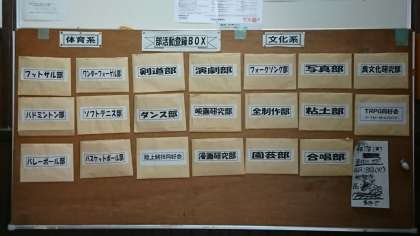 体育系
部活動登録BOX
文化系
フットサル部
ワンダーフォーゲル部
剣道部
演劇部
フォークソング部
写真部
異文化研究部
バドミントン部
ソフトテニス部
ダンス部
映画研究部
全制作部
粘土部
TRPG同好会
バレーボール部
バスケットボール部
陸上競技同好会
漫画研究部
園芸部
合唱部